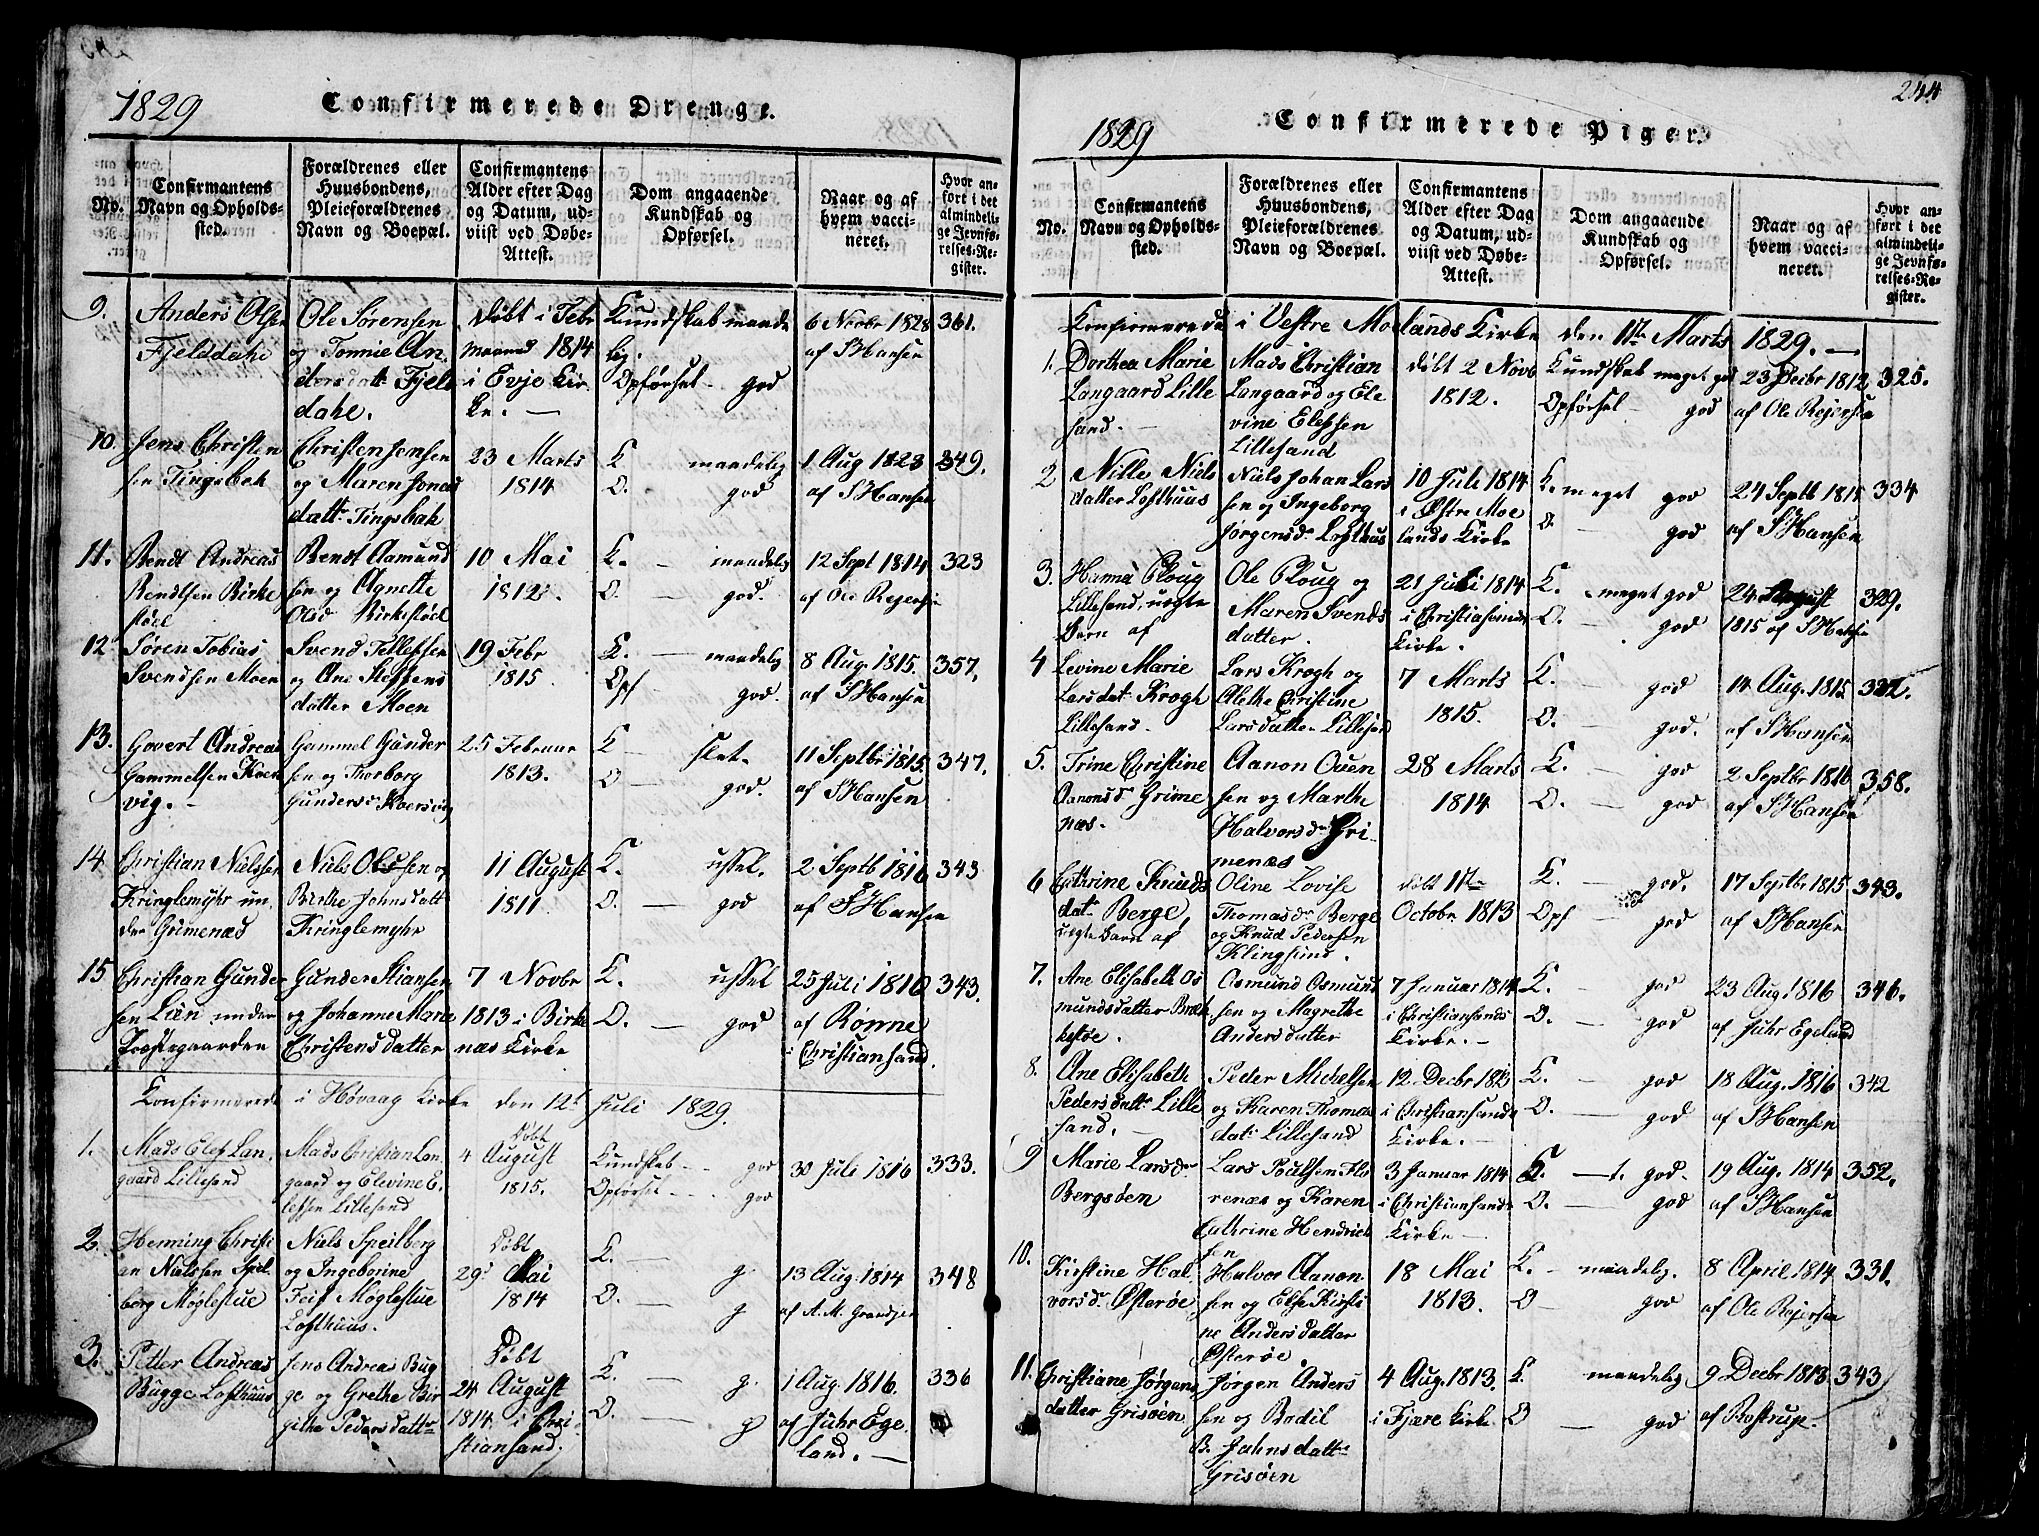 1829
Confirmerede Drenge.
No.
Confirmantens
Navn og Opholds-
sted.
Forældrenes eller
Huusbondens,
Pleieforældrenes
Navn og Boepæl.
Confirmantens
Alder efter Dag
og Datum, ud-
viist ved Døbe-
Attest.
Dom angaaende
Kundskab og
Opførsel.
Naar og af
hvem vacci-
neret.
Hvor an-
ført i det
almindeli-
ge Jevnfø-
relses-Re-
gister.
9. Anders Olsen
Fjelddahl
Ole Sørensen
og Tonnie An
dersdatt Fjeld
dahl.
Døbt i Febr
maaned 1814
i Evje Kir
ke. —
Kundskab maade
lig.
Opførsel - god
6 Novbr 1828
af SHansen
361.
10. Jens Christen
sen Tingsbak
Christen Jensen
og Maren Jonas
datt. Tingsbak
23 Marts
1814
K. maadelig
O. god
1 Aug 1823
af SHansen
349.
11. Bendt Andreas
Bendtsen Birke
støel
Bendt Aamund
sen og Agnette
Olsd Birkestøel
10 Mai
1812.
K. - maadelig
O. — god.
12 Sept 1814
af Ole Rejersen
323
12. Søren Tobias
Svendsen Moen
Svend Tellefsen
og Ane Steffens
datter Moen
19 Febr
1815
K. — maadelig
Opf — god.
8 Aug. 1815.
af SHansen
357.
13. Govert Andreas
Gammelsen Kaas
vig. -
Gammel Gunder
sen og Thorborg
Gundersdr Kaasvig
25 Februar
1813.
K — slet.
O — god.
11 Septbr 1815.
af SHansen
347.
14 Christian Nielssen
Kringlemyhr un
der Grimenæs
Niels Olussen og
Birthe Johnsdatt
Kringlemyhr
11 August
1811
K. ussel.
O. — god
2 Septb 1816
af SHansen
343
15 Christian Gunder
sen Lien under
Præstegaarden
Gunder Stiansen
og Johanne Marie
Christensdatter
7 Novbr
1813 i Birke
næs Kirke
K. — ussel
O. — god
25 Juli 1816
af Rønne
i Christiansand.
343.
Konfirmerede i Høvaag Kirke den 12t Juli 1829.
1. Mads Elef Lan
gaard Lillesand
Mads Christian Lan
gaard og Elevine E
lefsen Lillesand
Døbt
4 August
1815.
Kundskab - - god
Opførsel - - - god
30 Juli 1816
333.
2. Henning Christi
an Nielssen Speil
berg Møglestue
Niels Speilberg
og Ingeborine
Feif Møglestue
Lofthuus.
Døbt
29d Mai
1814
K. — g.
O. — g
13 Aug. 1814
af A.M. Grandjen
348
3. Petter Andreas
Bugge Lofthuus
Jens Andreas Bug
ge og Grethe Bir
githe Pedersdattr
Døbt
24 August
1814 i Chri
stiansand.
K. — g.
O. — g
1 Aug. 1816.
af Juhr Ege
land. —
336
244
1829
Confirmerede Piger.
No.
Confirmantens
Navn og Opholds-
sted.
Forældrenes eller
Huusbondens,
Pleieforældrenes
Navn og Boepæl.
Confirmantens
Alder efter Dag
og Datum, ud-
viist ved Døbe-
Attest.
Dom angaaende
Kundskab og
Opførsel.
Naar og af
hvem vacci-
neret.
Hvor an-
ført i det
almindeli-
ge Jevnfø-
relses-Re-
gister.
Konfirmerede i Vestre Molands Kirke den 1ste Marts 1829. —
1. Dorthea Marie
Langaard Lille
sand. -
Mads Christian
Langaard og Ele
vine Elefsen
Lillesand
døbt 2 Novb
1812.
Kundskab meget god
Opførsel - god
23 Decbr 1812
af Ole Rejersen
325.
2 Nille Niels
datter Lofthuus
Niels Johan Lars
sen og Ingeborg
Jørgensdr Lofthuus
10 Juli 1814
i Østre Moe
lands Kirke
K. meget god
O. — god
24 Septb 1815
af SHansen
334
3. Hanna Ploug
Lillesand, uægte
Barn af
Ole Ploug og
Maren Svends
datter.
21 Juli 1814
i Christiansands
Kirke.
K. - meget god
O. — god
24 August
1815 af SHansen
329.
4 Levine Marie
Larsdat Krogh
Lillesand.
Lars Krogh og
Alethe Christine
Larsdatter Lillesand
7 Marts
1815.
K. god
O. — god.
14 Aug. 1815
af SHansen
322.
5. Trine Christine
Aanonsdr Grime
næs.
Aanon Ouen
sen og Marthe
Halvorsdr Gri
menæs
28 Marts
1814
K. — god
O. — god
2 Septbr 1816
af SHansen
358.
6 Cathrine Knuds
datr Berge,
uægte Barn af
Oline Lovise
Thomasdr Berge
og Knud Pedersen
Klingsund.
døbt 1ste
Octobr 1813
K. — god.
Opf — god
17 Septbr 1815
af SHansen
343.
7. Ane Elisabeth Os
mundsdatter Bræk
kestøe.
Osmund Osmund
sen og Magrethe
Andersdatter
7 Januar 1814
i Christiansands
Kirke. -
K. — god
O. — god
23 Aug. 1816
af Juhr Egeland
346.
8. Ane Elisabeth
Pedersdattr Lille
sand. -
Peder Michelsen
og Karen Thomas
datr Lillesand
12 Decbr 1813
i Christiansands
Kirke. -
K. — god
O. — god
18 Aug. 1816
af SHansen
342
9 Marie Larsdr
Bergsøen
Lars Poulsen Flo
renæs og Karen
Cathrine Hendrich
sen
3 Januar 1814
i Christiansands
Kirke —
K. — t. god.
O. — god
19 Aug. 1814
af SHansen
352.
10. Kirstine Hal
vorsdr Østerøe
Halvor Aanon
sen og Else Kirsti
ne Andersdatter
Østerøe.
18 Mai
1813.
K. - maadelig.
O — god
8 April 1814
af Ole Rejersen
331.
11. Christiane Jørgens
datter Grisøen
Jørgen Anders
sen og Bodil
B. Jahnsdattr
Grisøen
4 Aug. 1813.
i Fjære Kirke
K. maadelig
O — god
9 Decbr 1813
af Rostrup.
343